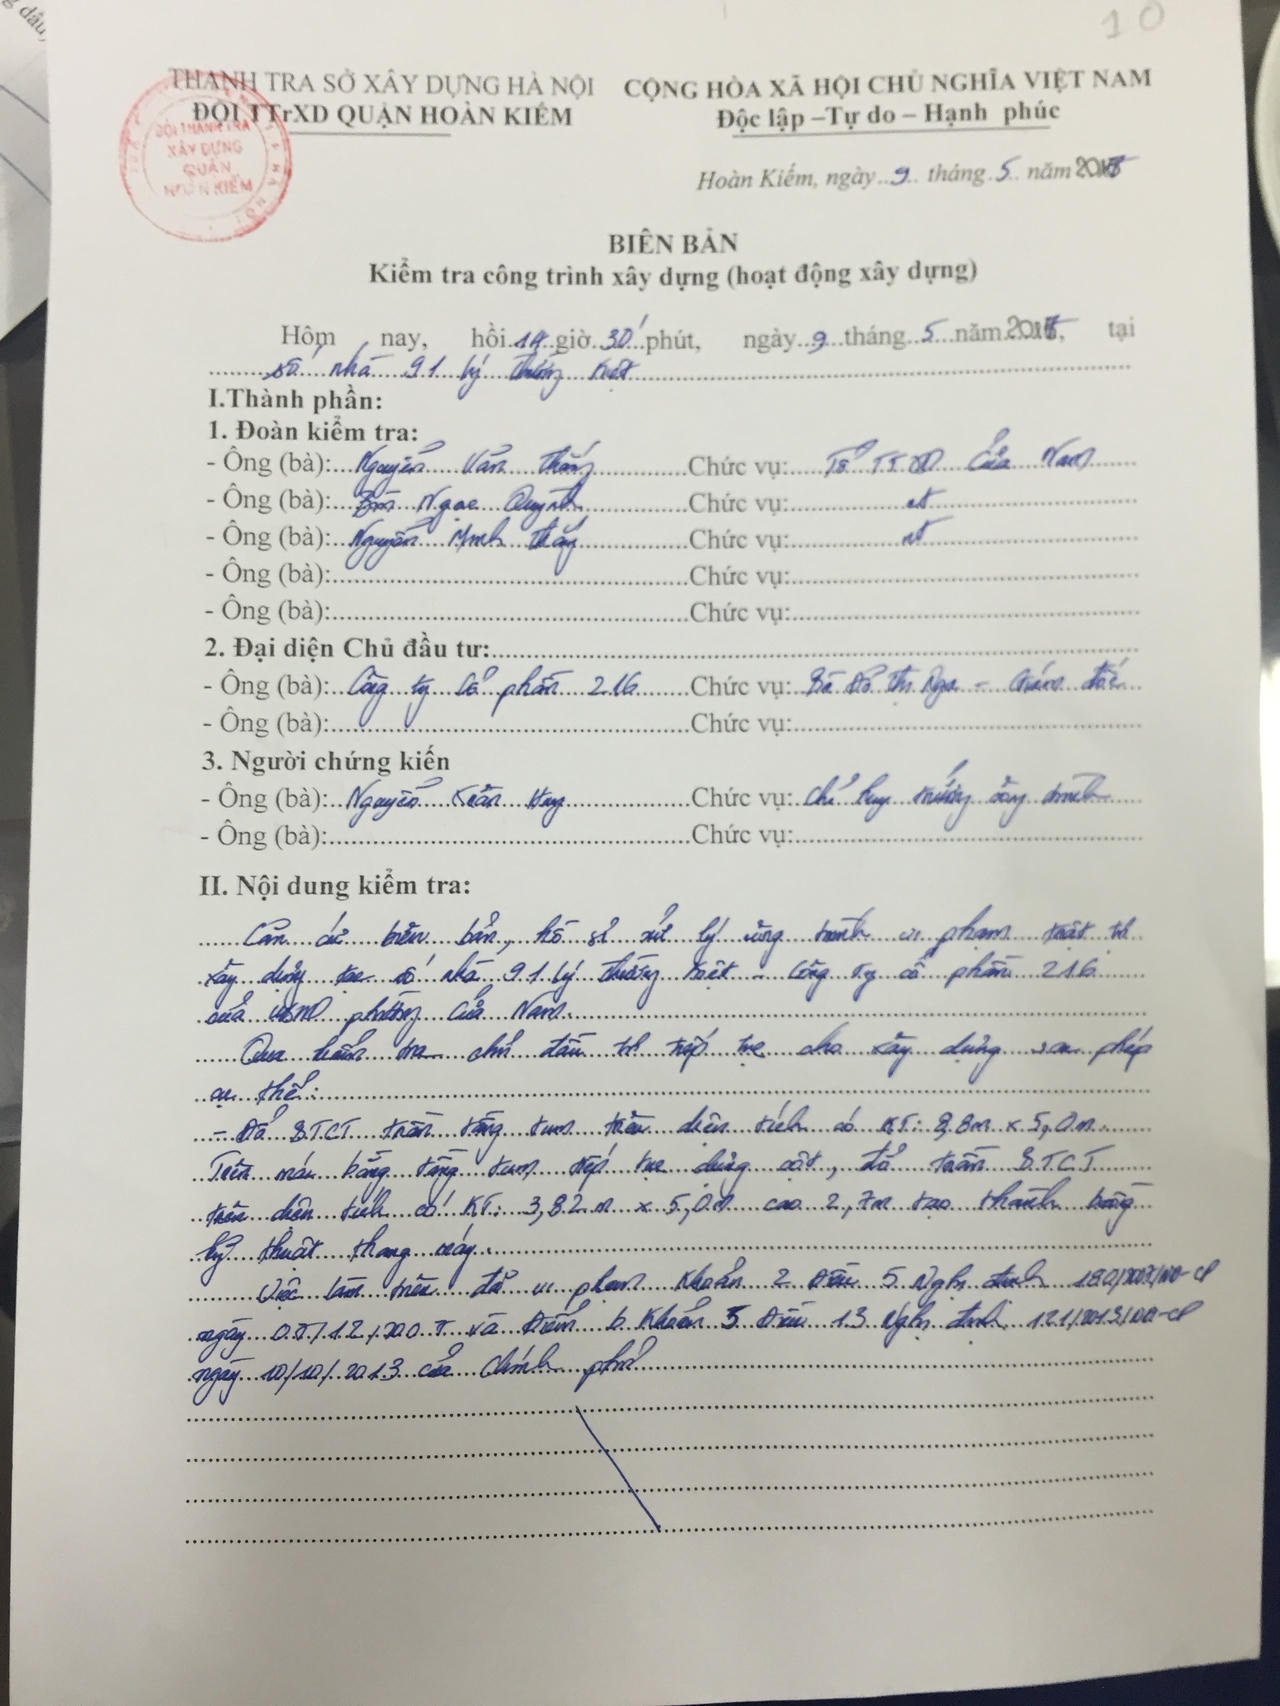 10
THANH TRA SỞ XÂY DỰNG HÀ NỘI
ĐỘI TTrXD QUẬN HOÀN KIẾM
CỘNG HÒA XÃ HỘI CHỦ NGHĨA VIỆT NAM
Độc lập –Tự do – Hạnh phúc
ĐỘI THANH TRA
XÂY DỰNG
QUẬN
HOÀN KIẾM
Hoàn Kiếm, ngày 9 tháng 5 năm
BIÊN BẢN
Kiểm tra công trình xây dựng (hoạt động xây dựng)
Hôm nay, hồi 14 giờ 30 phút, ngày 9 tháng 5 năm tại
số nhà 91 Lý Thường Kiệt
I.Thành phần:
1. Đoàn kiểm tra:
- Ông (bà): Nguyễn Văn Thắng Chức vụ: Tổ TTXD Cửa Nam
- Ông (bà): Ngọc Quỳnh Chức vụ: nt
- Ông (bà): Nguyễn Minh Chức vụ: nt
- Ông (bà): Chức vụ:
- Ông (bà): Chức vụ:
2. Đại diện Chủ đầu tư:
- Ông (bà): Công ty Cổ phần 216 Chức vụ: Bà Đỗ Thị Nga - Giám đốc
- Ông (bà): Chức vụ:
3. Người chứng kiến
- Ông (bà): Nguyễn Huy Chức vụ: Chỉ huy trưởng công trình
- Ông (bà): Chức vụ:
II. Nội dung kiểm tra:
Căn cứ biên bản, hồ sơ xử lý công trình vi phạm trật tự
xây dựng tại số nhà 91 Lý Thường Kiệt - Công ty cổ phần 216
của UBND phường Cửa Nam.
Qua kiểm tra chủ đầu tư tiếp tục cho xây dựng sai phép
cụ thể:
- Đổ BTCT trần tầng tum trên diện tích có KT: 3,8m x 5,0m.
Trên mái bằng tầng tum tiếp tục dựng cột, đổ trần BTCT
trên diện tích có KT: 3,82m x 5,0m cao 2,7m tạo thành tầng
kỹ thuật thang máy.
Việc làm trên đã vi phạm Khoản 2 Điều 5 Nghị định 180/2007/NĐ-CP
ngày 07/12/2007 và Điểm b Khoản 5 Điều 13 Nghị định 121/2013/NĐ-CP
ngày 10/10/2013 của Chính phủ